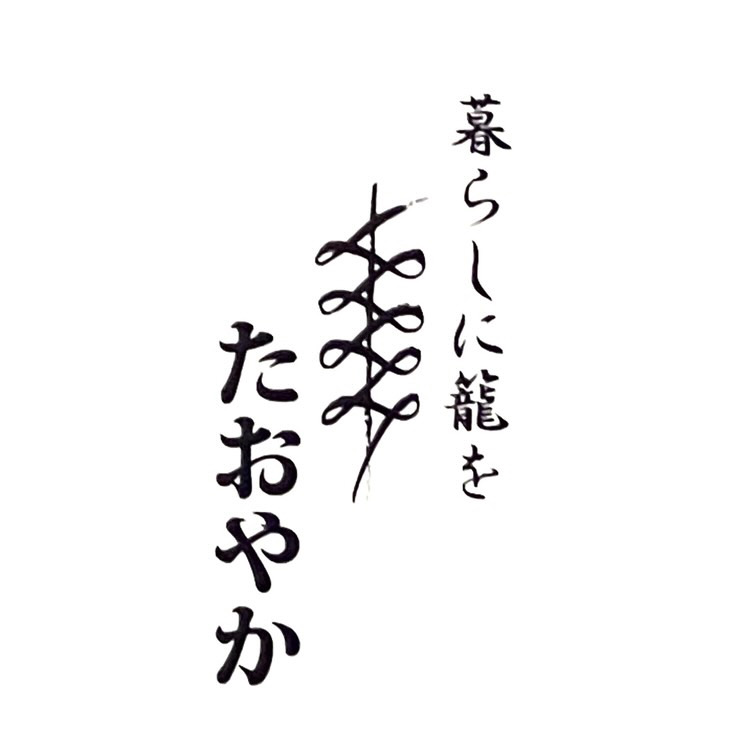 暮らしに籠を
たおやか